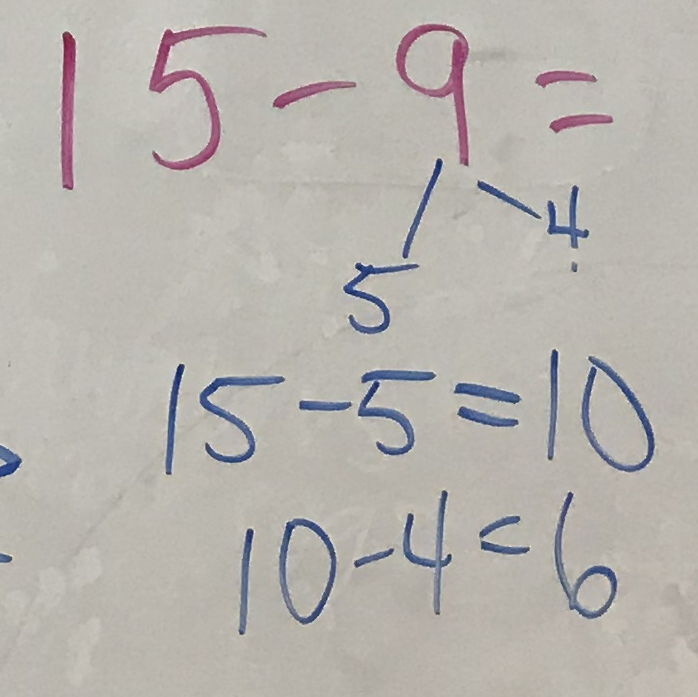 15-9=
4
5
15-5=10
10-4=6